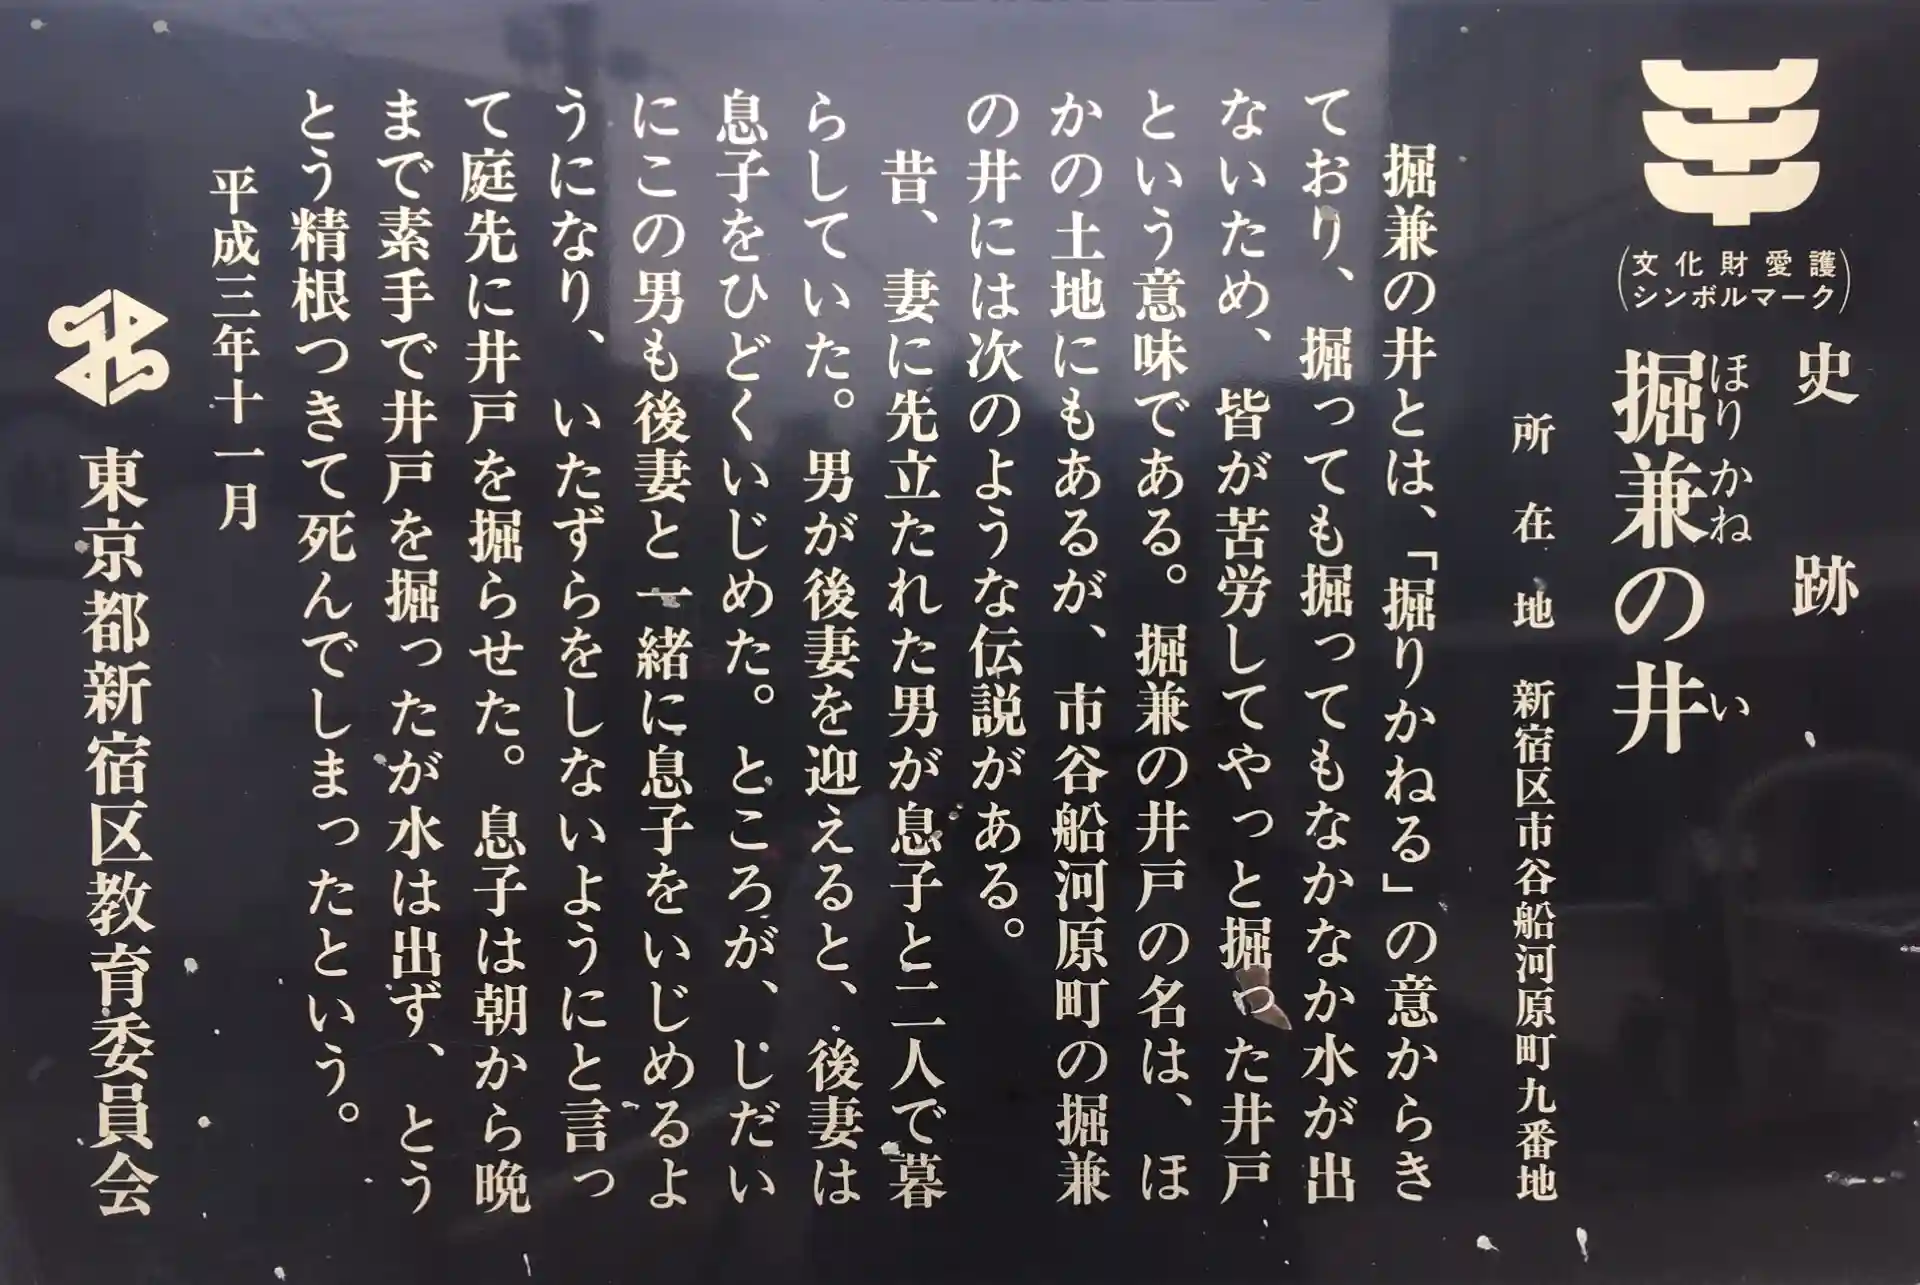 (文化財愛護
シンボルマーク)
史跡
ほりかね い
掘兼の井
所在地 新宿区市谷船河原町九番地
掘兼の井とは、「掘りかねる」の意からき
ており、掘っても掘ってもなかなか水が出
ないため、皆が苦労してやっと掘った井戸
という意味である。掘兼の井戸の名は、ほ
かの土地にもあるが、市谷船河原町の掘兼
の井には次のような伝説がある。
昔、妻に先立たれた男が息子と二人で暮
らしていた。男が後妻を迎えると、後妻は
息子をひどくいじめた。ところが、しだい
にこの男も後妻と一緒に息子をいじめるよ
うになり、いたずらをしないようにと言っ
て庭先に井戸を掘らせた。息子は朝から晩
まで素手で井戸を掘ったが水は出ず、とう
とう精根つきて死んでしまったという。
平成三年十一月
東京都新宿区教育委員会